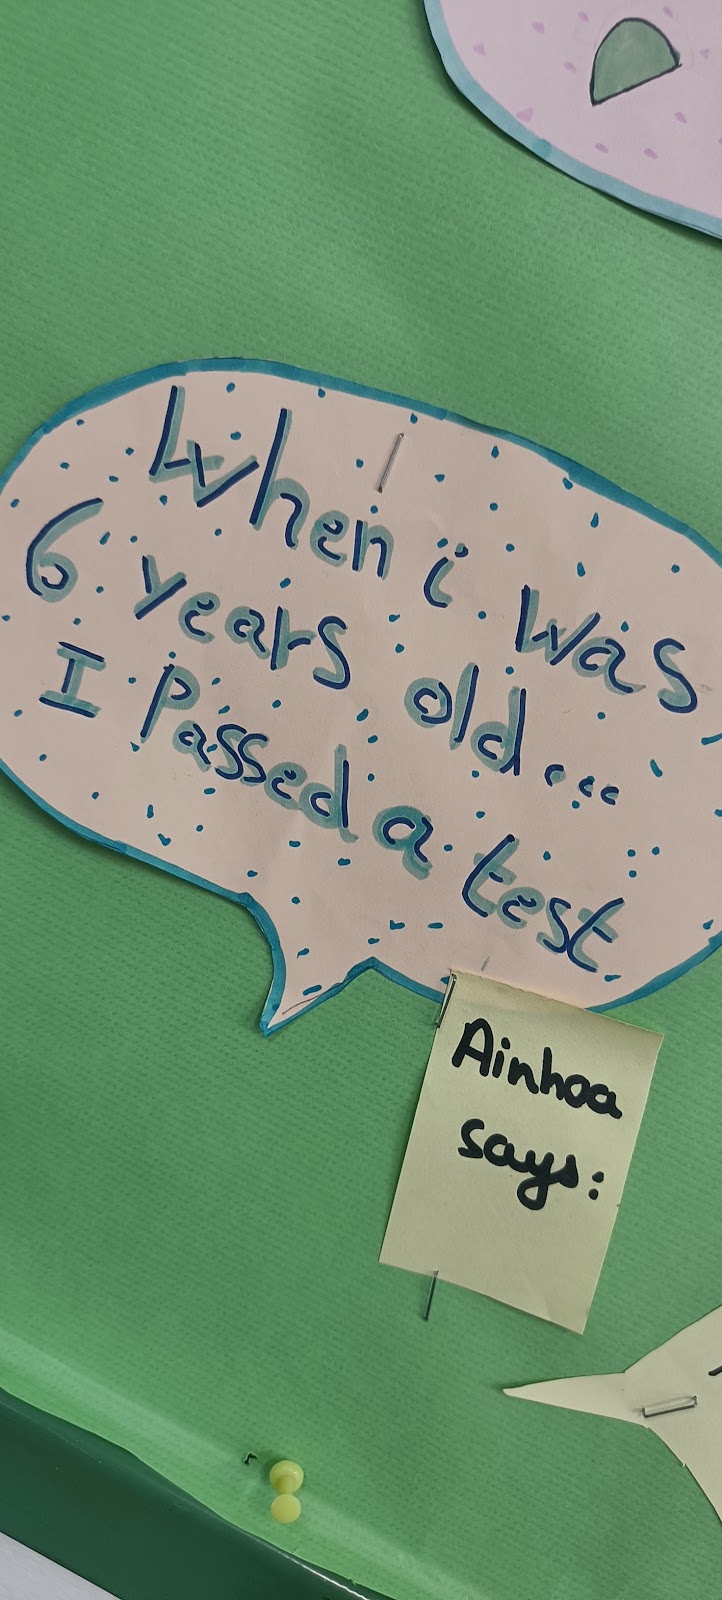 When i was
6 years old...
I Passed a test
Ainhoa
says: